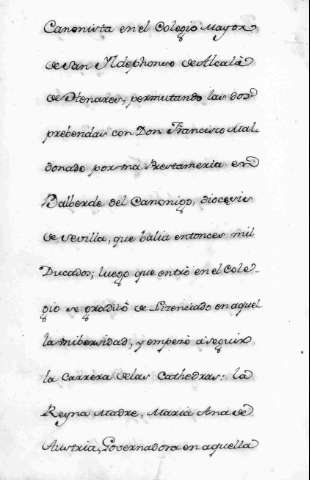 Canonista en el Colegio Mayor
de San Ildephonso de Alcalà
de Henares, permutando las dos
prebendas con Don Francisco Mal-
donado por una Prestameria en
Balberde del Canonigo, diocesis
de Sevilla, que balia entonces mil
Ducados; luego que entrò en el Cole-
gio se graduò de Lizenciado en aquel
la Unibersidad, y empezò à seguir
la Carrera de las Cathedras: la
Reyna Madre, Maria Ana de
Austria, Governadora en aquella